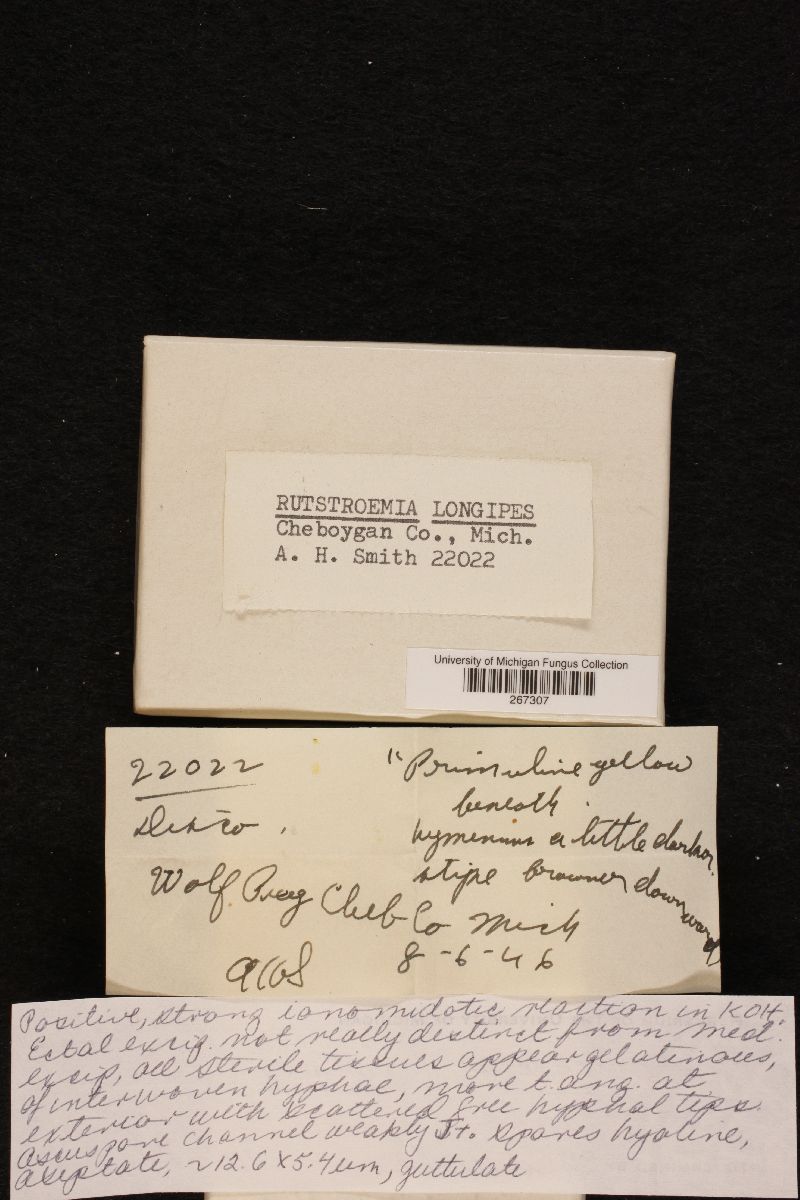 RUTSTROEMIA LONGIPES
Cheboygan Co., Mich.
A. H. Smith 22022
University of Michigan Fungus Collection
267307
22022
Disco.
"Primuline yellow
beneath.
hymenium a little darker.
stipe browner downward
Wolf Cheb Co Mich
8-6-46
AHS
Positive, strong ionomidotic reaction in KOH.
Ectal excip. not really distinct from med.
excip, all sterile tissues appear gelatinous,
of interwoven hyphae, more t. ang. at
exterior with scattered free hyphal tips.
ascus pore channel weakly J+. Spores hyaline,
aseptate, ~12.6 x 5.4 um, guttulate